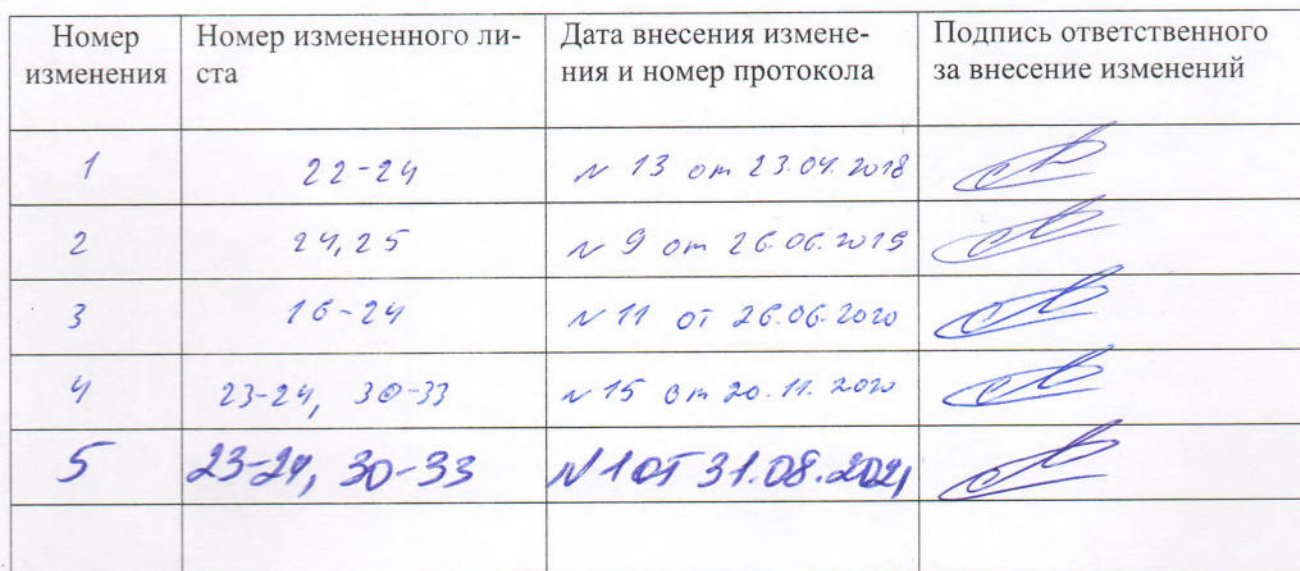 Номер изменения | Номер измененного ли-ста | Дата внесения измене-ния и номер протокола | Подпись ответственного за внесение изменений
1 | 22-24 | N 13 от 23.04.2018
2 | 24,25 | N 9 от 26.06.2019
3 | 16-24 | N 11 от 26.06.2020
4 | 23-24, 30-33 | N 15 от 20.11.2020
5 | 23-24, 30-33 | N 1 от 31.08.2021